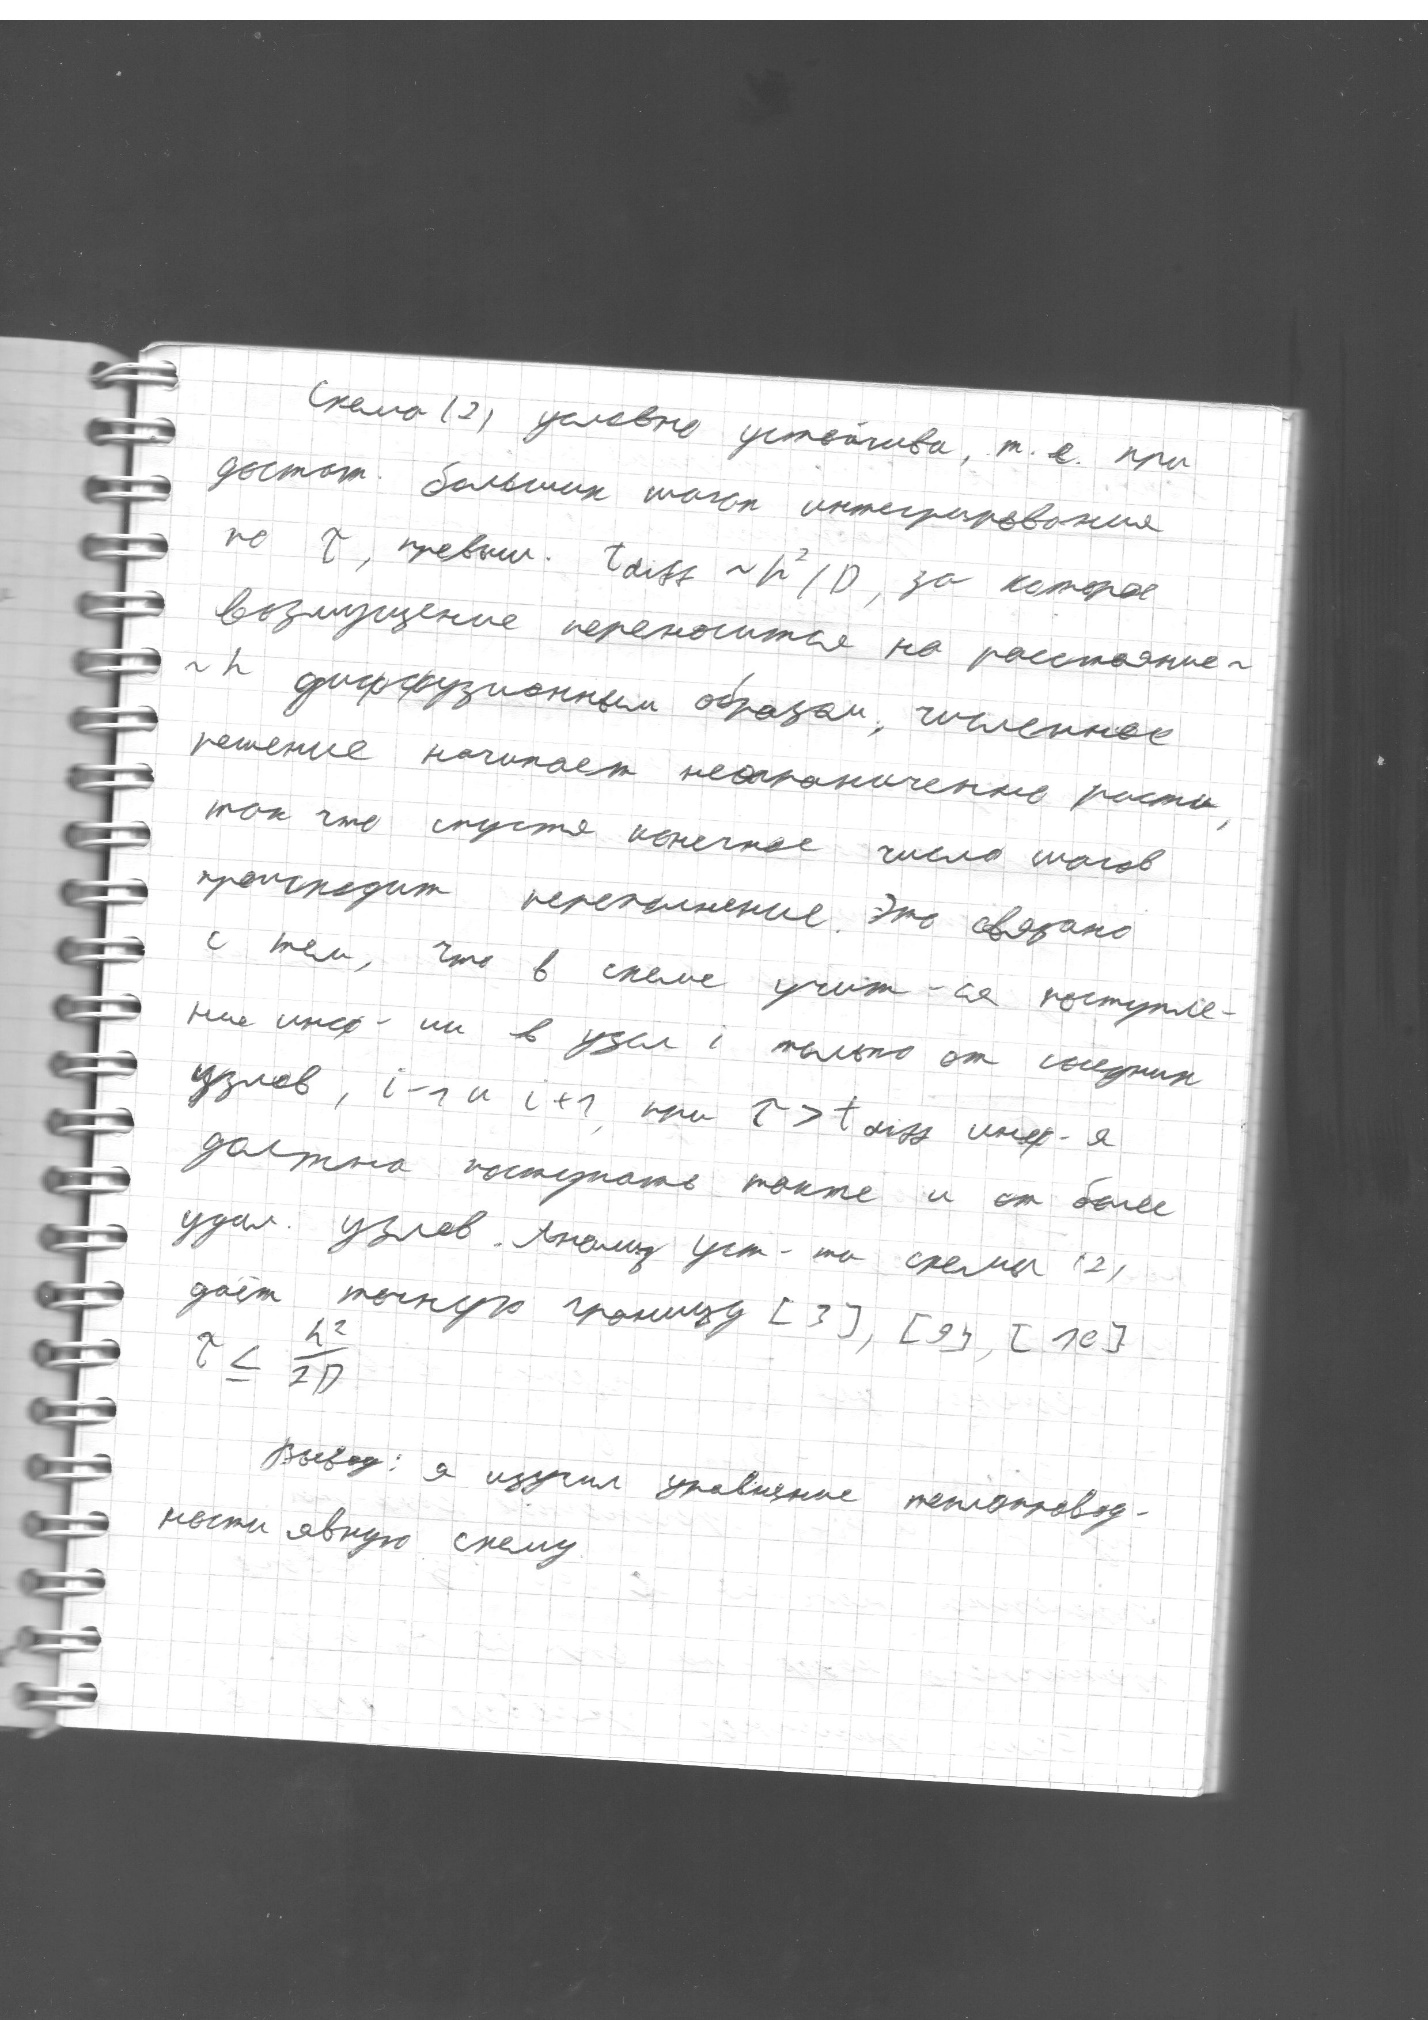 Схема (2) условно устойчива, т.е. при
достат. больших шагах интегрирования
по τ, превыш. t_diff ~ h²/D, за которое
возмущение переносится на расстояние ~
~ h диффузионным образом, численное
решение начинает неограниченно расти,
так что спустя конечное число шагов
происходит переполнение. Это связано
с тем, что в схеме учит-ся поступле-
ние инф-ии в узел i только от соседних
узлов, i-1 и i+1, при τ > t_diff инф-я
должна поступать также и от более
удал. узлов. Анализ уст-ти схемы (2)
даёт точную границу [3], [9], [10]
τ ≤ h²/2D
Вывод: я изучил уравнение теплопровод-
ности явную схему